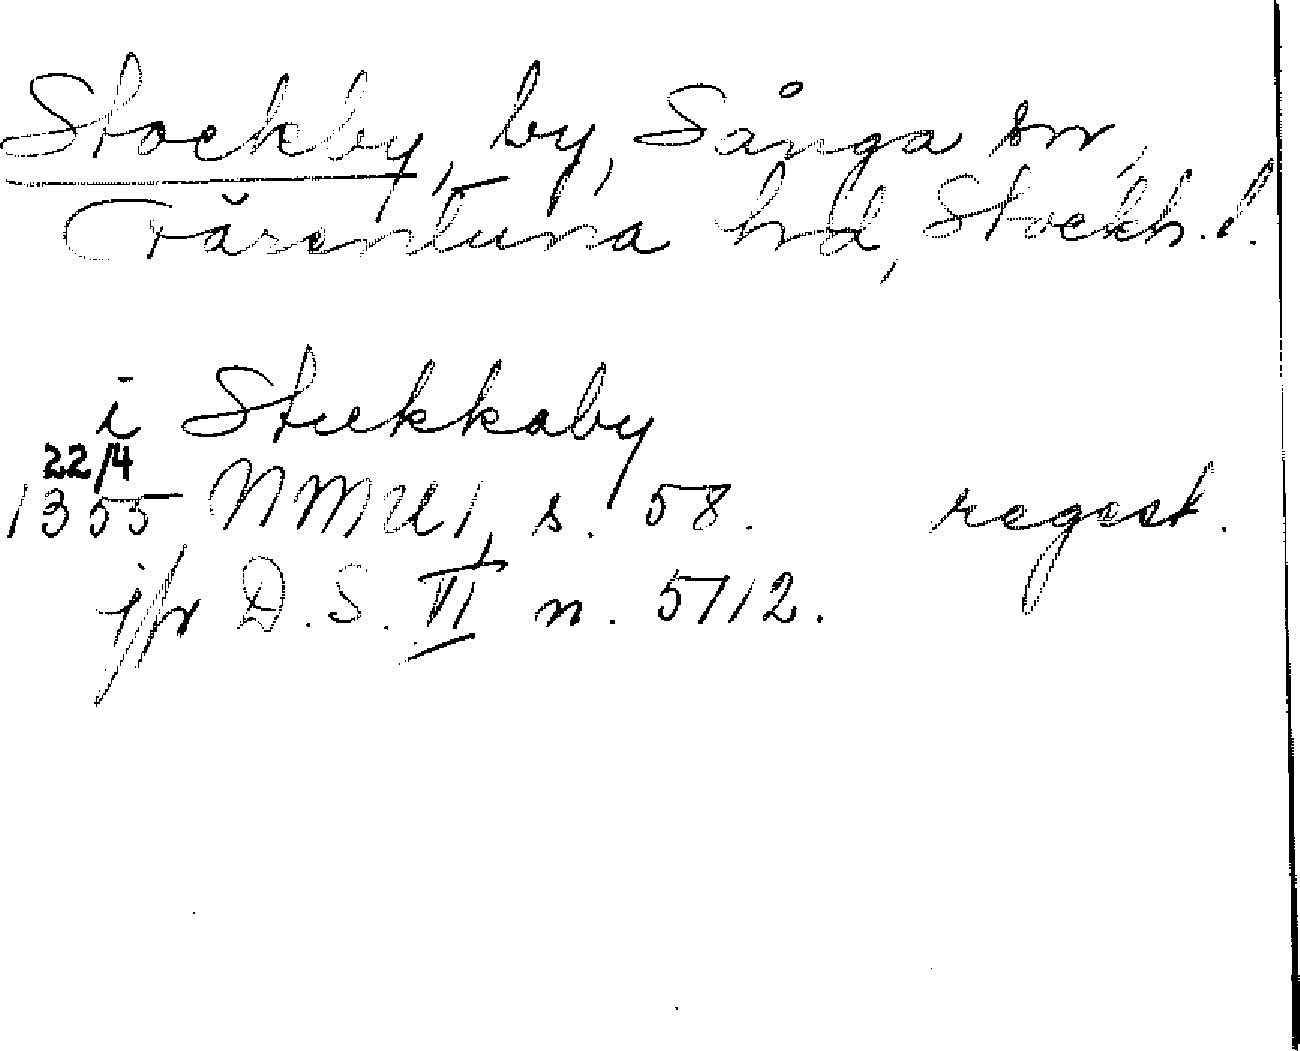 Stockby, by, Sånga sn,
Färentuna hd, Stockh. l.
i Stukkaby
22/4
1355 NMU 1, s. 58. regest.
jfr D. S. VI n. 5712.